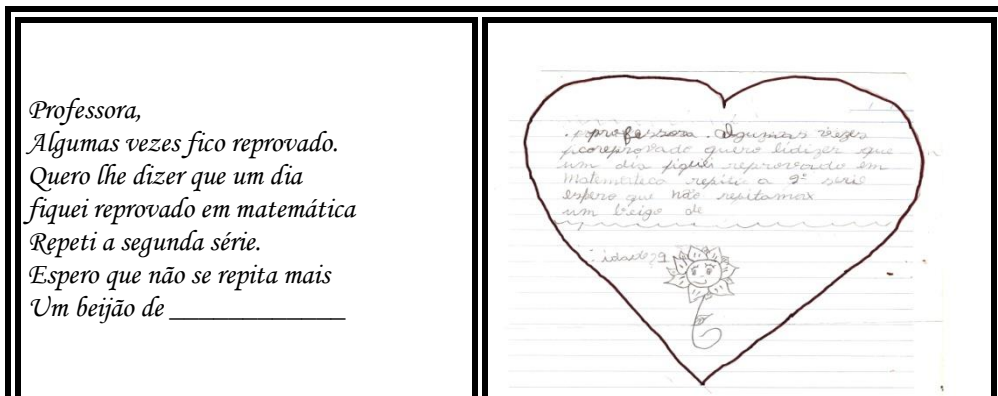 Professora,
Algumas vezes fico reprovado.
Quero lhe dizer que um dia
fiquei reprovado em matemática
Repeti a segunda série.
Espero que não se repita mais
Um beijão de ____________
. professora . Algumas vezes
ficoreprovado quero lidizer que
um dia fiquei reprovardo em
Matemateca repiti a 2ª serie
espero que não repitamax
um beigo de
idade 29